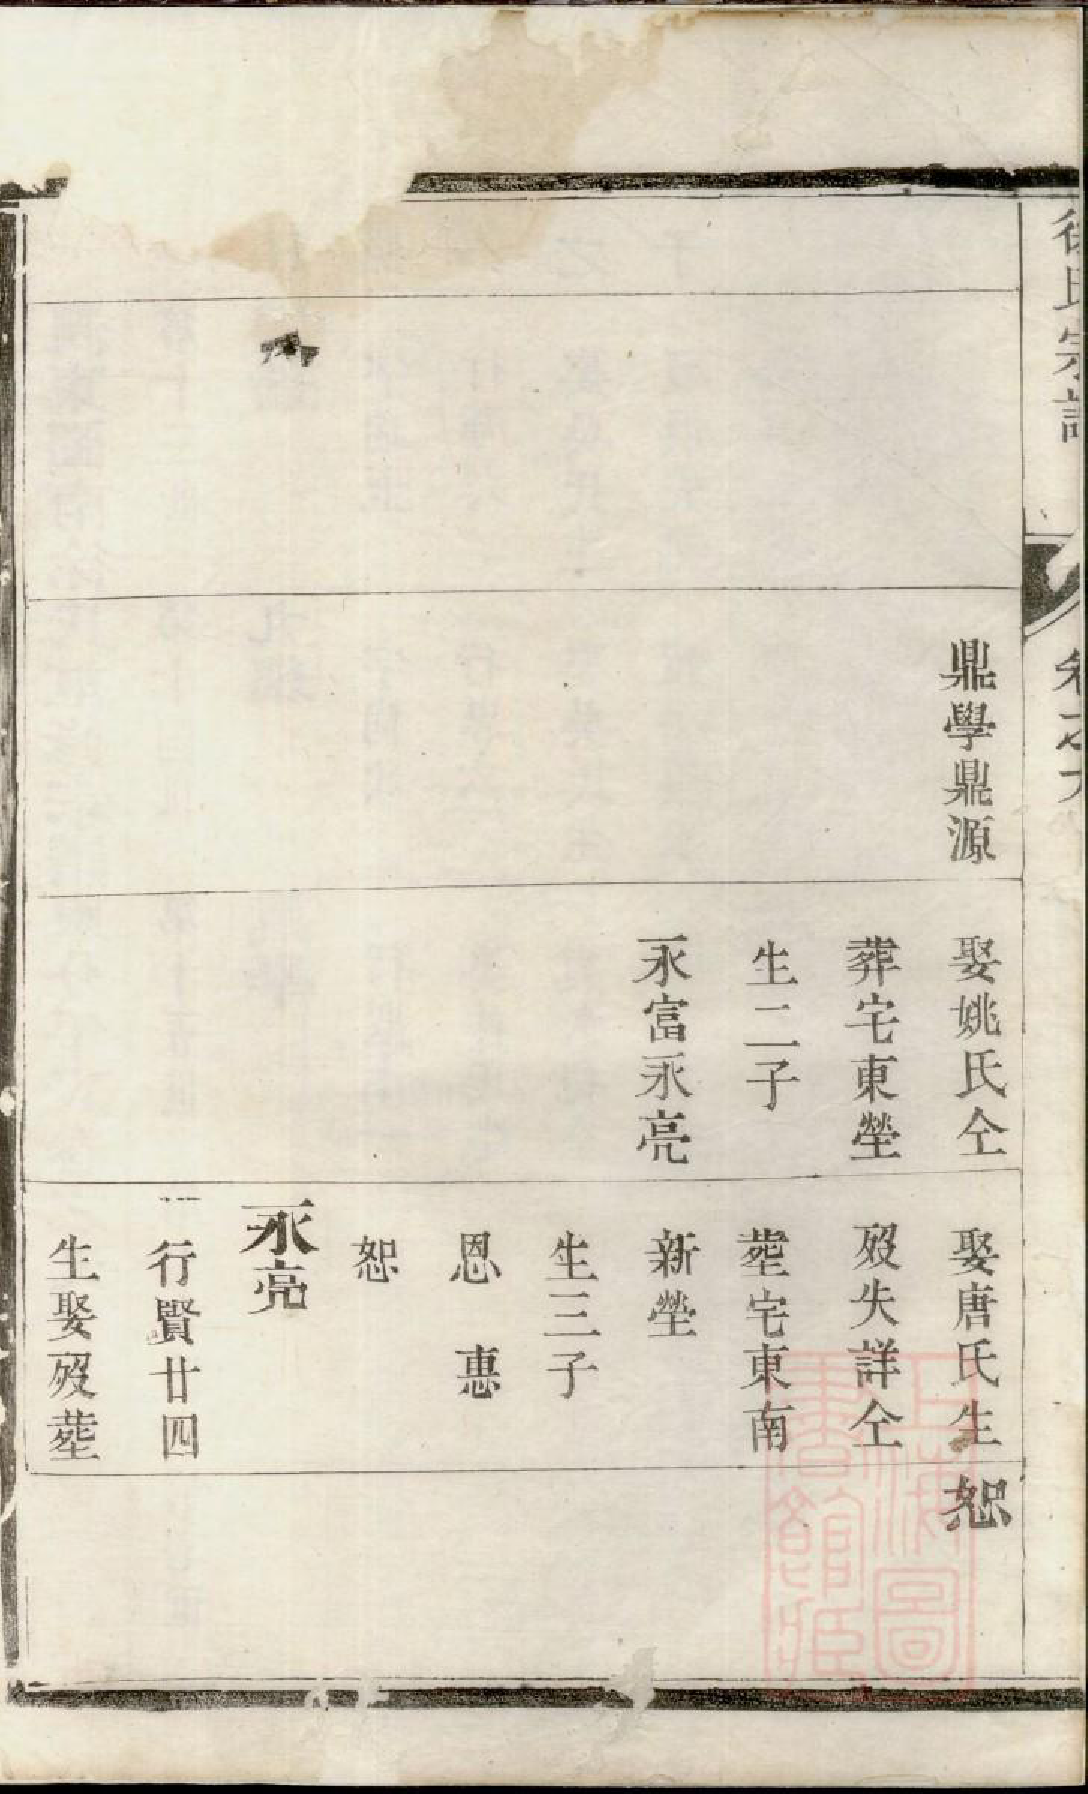 徐氏宗譜
卷之六
鼎學鼎源
娶姚氏仝
葬宅東塋
生二子
永富永亮
娶唐氏生
歿失詳仝
塟宅東南
新塋
生三子
恩　惠
恕
永亮
行賢廿四
生娶歿塟
恕
上海圖
書館藏